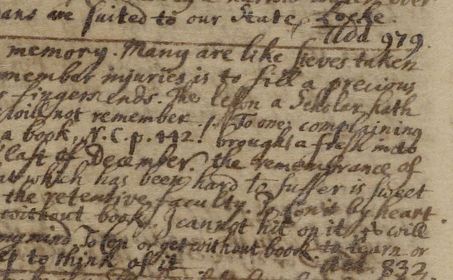 ans are suited to our State, Locke.
Add 979.
memory. Many are like sieves taken
member injuries is to fill a precious
fingers ends. The lesson a Scholar hath
will not remember. To one complaining
a book, V. C. p. 442. brought a fresh into
last of December. the remembrance of
which has been hard to suffer is sweet
the retentive faculty. To con it by heart.
without book. I cannot hit on it. It will
my mind To con or get without book. to learn or
to think of it. Add 832